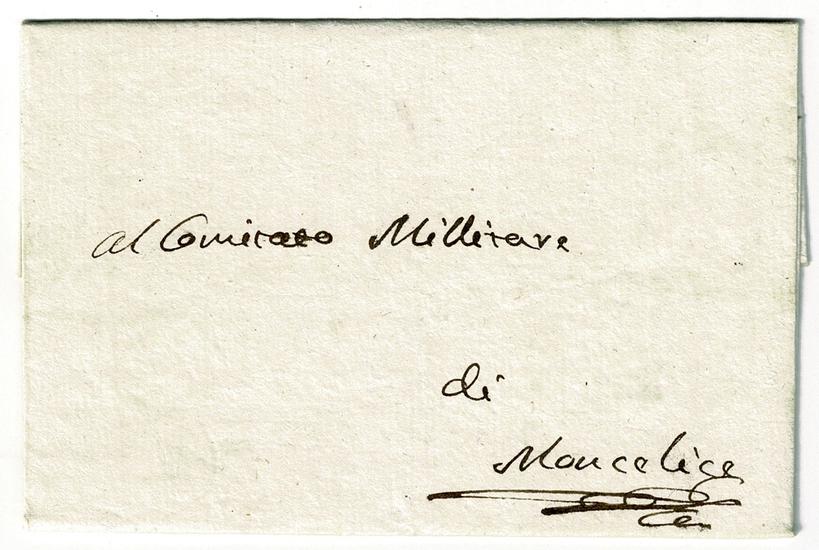 al Comitato Millitare
di
Moncelice